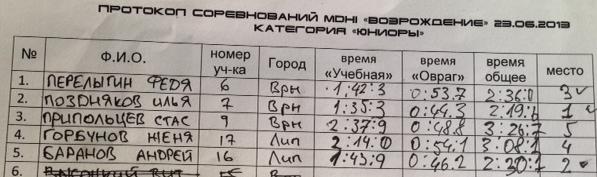 ПРОТОКОЛ СОРЕВНОВАНИЙ MDHI «ВОЗРОЖДЕНИЕ» 23.06.2013
КАТЕГОРИЯ «ЮНИОРЫ»
№ Ф.И.О. номер уч-ка Город время «Учебная» время «Овраг» время общее место
1. ПЕРЕЛЫГИН ФЕДЯ 6 Врн 1:42:3 0:53.7 2:36:0 3
2. ПОЗДНЯКОВ ИЛЬЯ 7 Врн 1:35:3 0:44.3 2:19:6 1
3. ПРИПОЛЬЦЕВ СТАС 9 Врн 2:37:9 0:48.8 3:26:7 5
4. ГОРБУНОВ ЖЕНЯ 17 Лип 2:14:0 0:54.1 3:08.1 4
5. БАРАНОВ АНДРЕЙ 16 Лип 1:43:9 0:46.2 2:30:1 2
6.